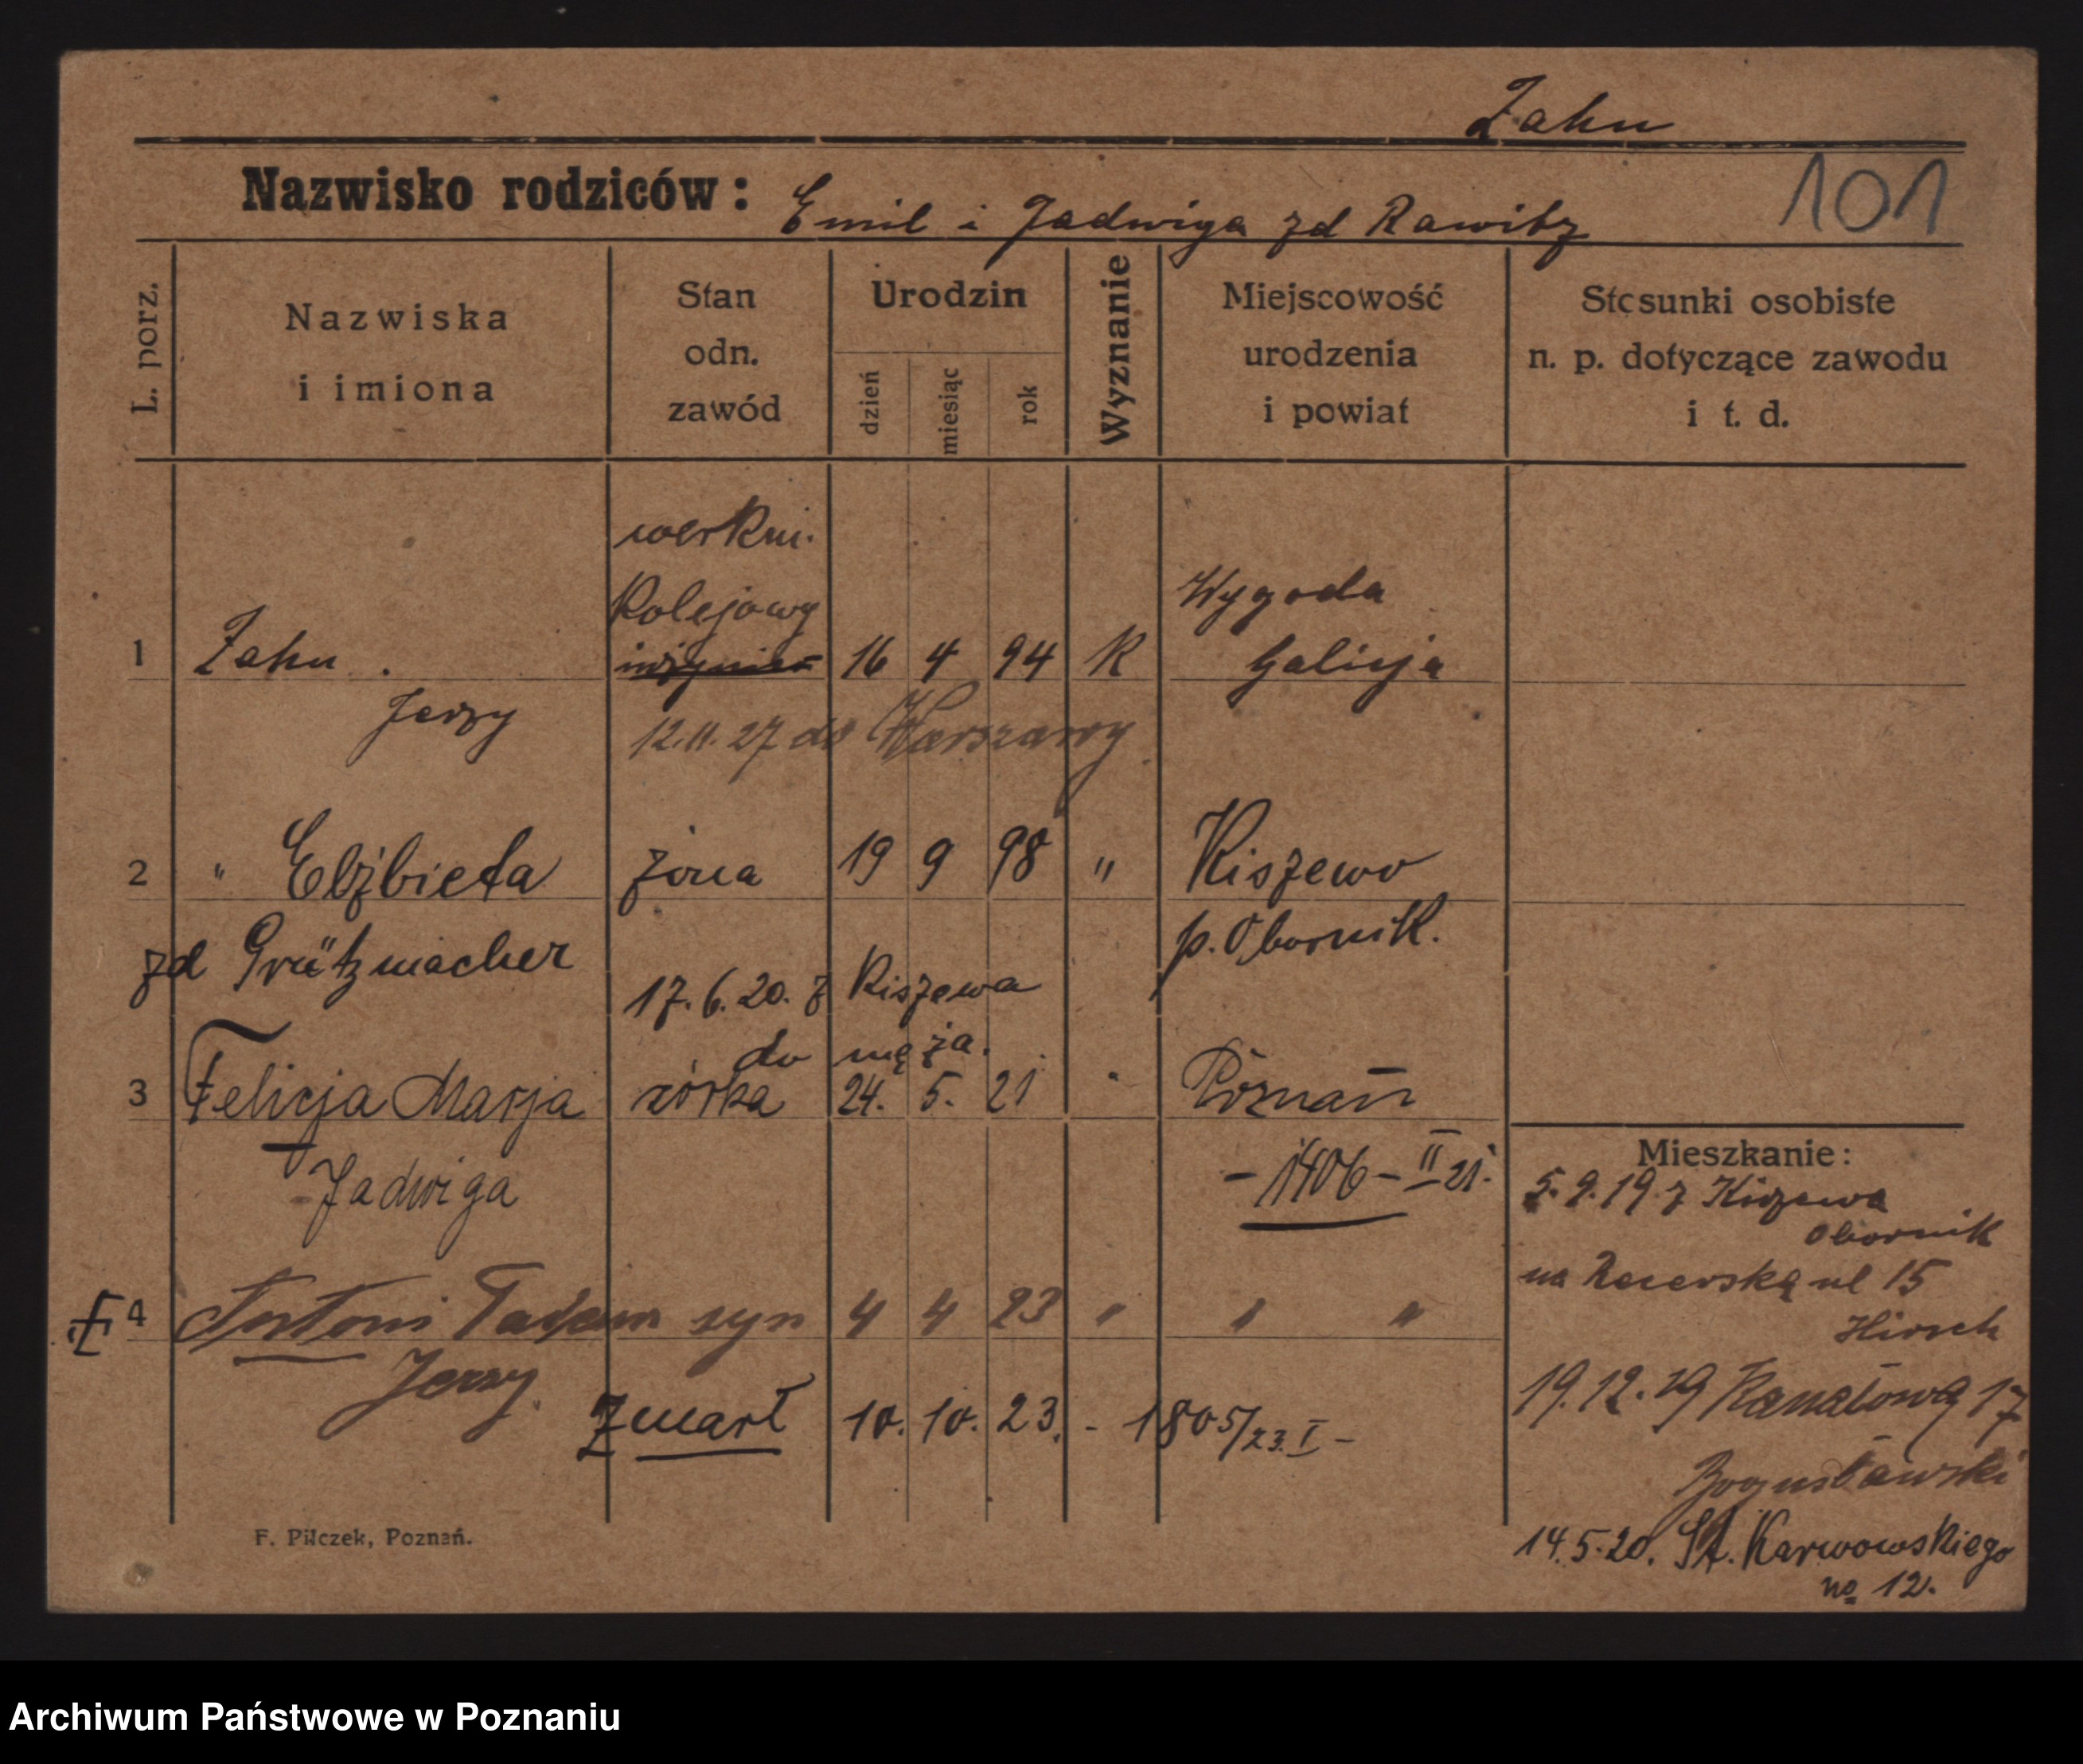 Zahn
Nazwisko rodziców: Emil i Jadwiga zd Rawitz
101
L. porz.
Nazwiska i imiona
Stan odn. zawód
Urodzin
dzień
miesiąc
rok
Wyznanie
Miejscowość urodzenia i powiat
Stosunki osobiste n. p. dotyczące zawodu i t. d.
Kolejowy
Wygoda
1 Zahn inżynier 16 4 94 K Galicja
Jerzy 12.11.27 do Warszawy
2 " Elżbieta żona 19 9 98 " Kiszewo
zd Grützmacher p. Obornik.
17.6.20. z Kiszewa
do męża.
3 Felicja Marja córka 24. 5. 21 " Poznań
Jadwiga -1406-II 21.
4 Antoni Tadeusz syn 4 4 23 " " "
Jerzy
Zmarł 10. 10. 23. - 1805/23.I -
Mieszkanie:
5.9.19 z Kiszewa
Obornik
ul 15
Hirsch
19.12.19 Kanałowa 17
Bogusławski
14.5.20. St. Karwowskiego
no 12.
F. Pilczek, Poznań.
Archiwum Państwowe w Poznaniu